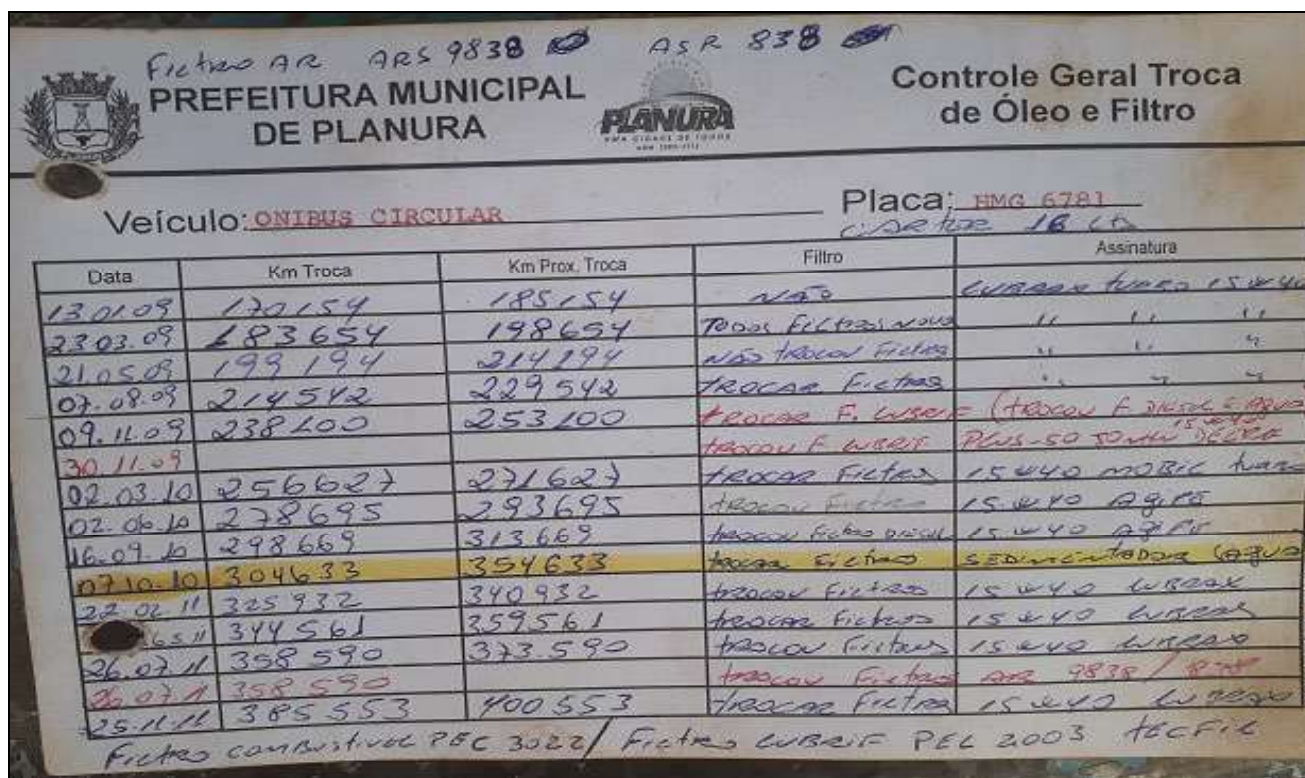 Filtro AR ARS 9838 ASR 838
PREFEITURA MUNICIPAL
DE PLANURA
PLANURA
UMA CIDADE DE TODOS
Controle Geral Troca
de Óleo e Filtro
Veículo: ONIBUS CIRCULAR Placa: HMG 6781
CARTER 16 LTS
Data Km Troca Km Prox. Troca Filtro Assinatura
13.01.09 170154 185154 NÃO LUBRAX TURBO 15W40
23.03.09 183654 198654 TODOS FILTROS NOVO " " "
21.05.09 199194 214194 NÃO TROCOU FILTROS " " "
07.08.09 214542 229542 TROCAR FILTROS " " "
09.11.09 238100 253100 TROCAR F. LUBRIF (TROCOU F. DIESEL E AGUA
30.11.09 TROCOU F LUBRIF PLUS-50 15W40
02.03.10 256627 271627 TROCAR FILTROS 15W40 MOBIL TURBO
02.06.10 278695 293695 TROCOU FILTROS 15W40 AGIPE
16.09.10 298669 313669 TROCOU FILTRO DIESEL 15W40 AGIPE
07.10.10 304633 354633 TROCAR FILTROS SEDIMENTADOR (AGUA
22.02.11 325932 340932 TROCOU FILTROS 15W40 LUBRAX
05.11 344561 359561 TROCAR FILTROS 15W40 LUBRAX
26.07.11 358590 373.590 TROCOU FILTROS 15W40 LUBRAX
26.07.11 358590 TROCOU FILTROS ARS 9838 / 838
25.11.11 385553 400553 TROCAR FILTROS 15W40 LUBRAX
Filtro COMBUSTIVEL PEC 3022 / Filtro LUBRIF PEL 2003 TECFIL